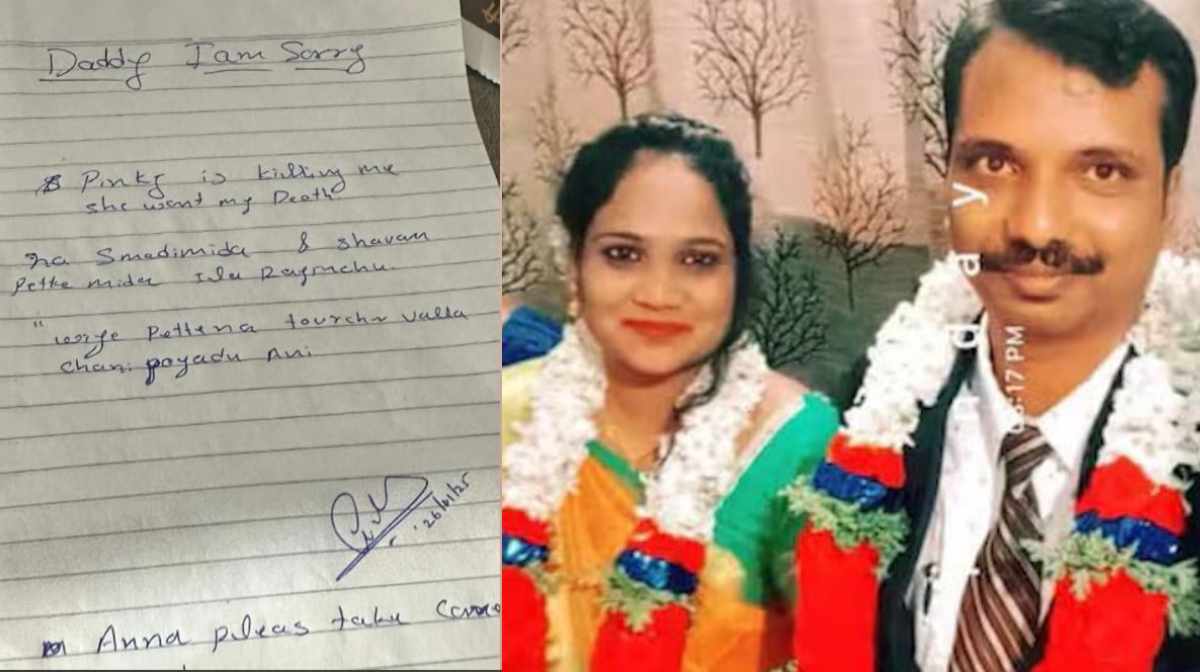 Daddy I am Sorry
Pinky is killing me
she want my Death
na Smadimida & shavam
Pette mida Ila Rayinchu.
"
Pettina tourchr valla
Chani poyadu Ani
26/01/25
Anna pleas take
d a y
6:17 PM